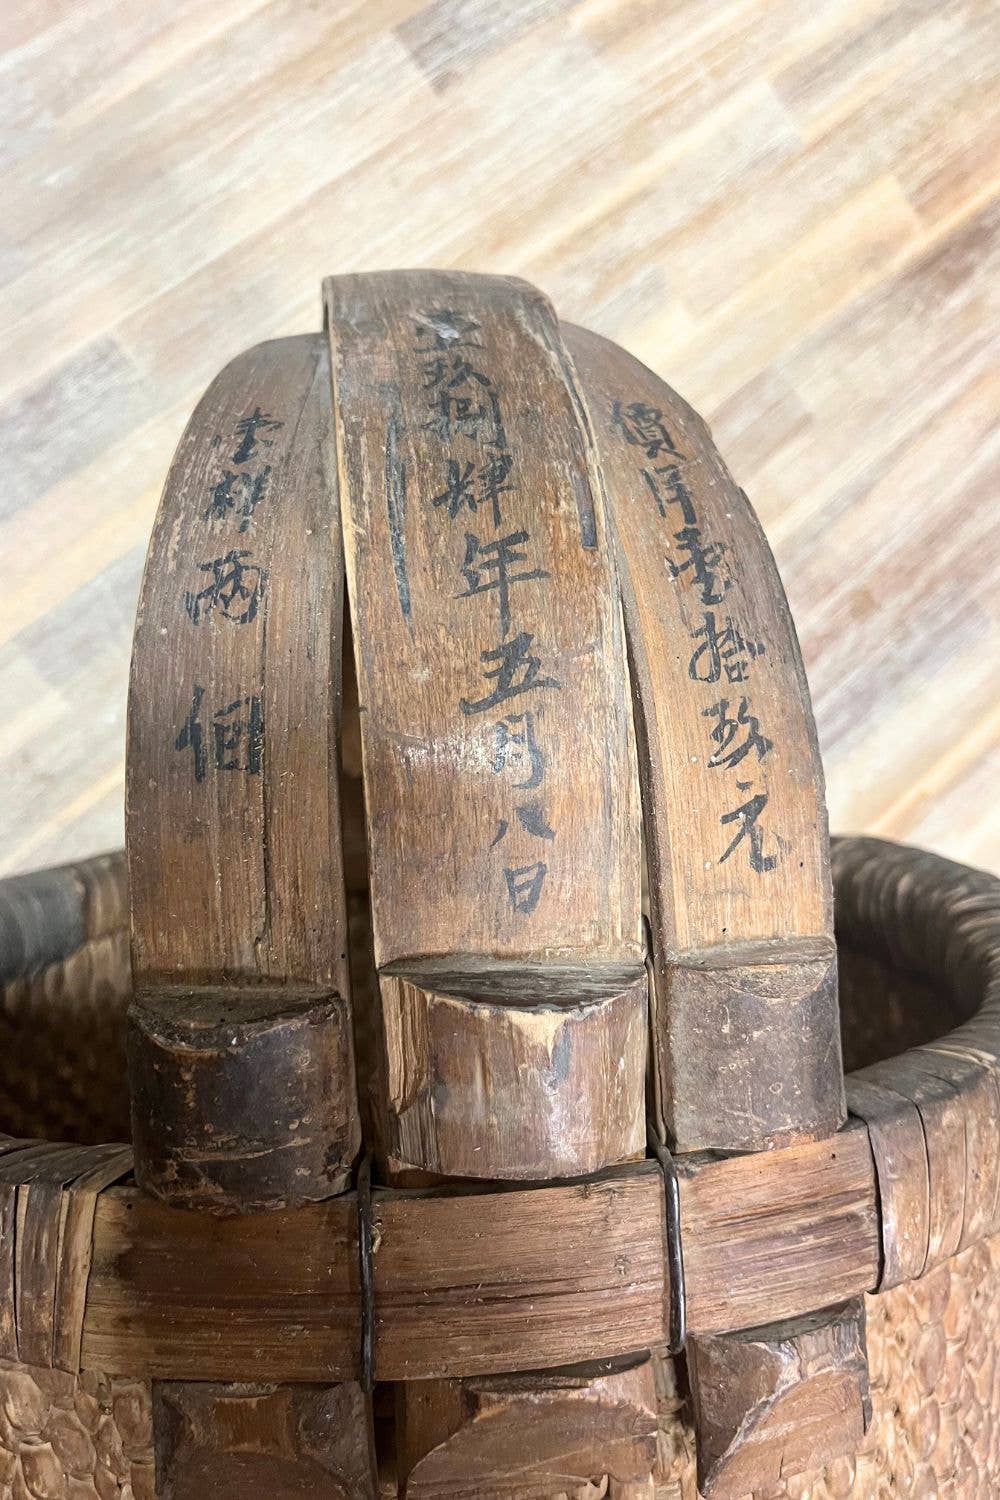 價洋壹拾玖元
壹玖捌肆年五月八日
壹樣兩個